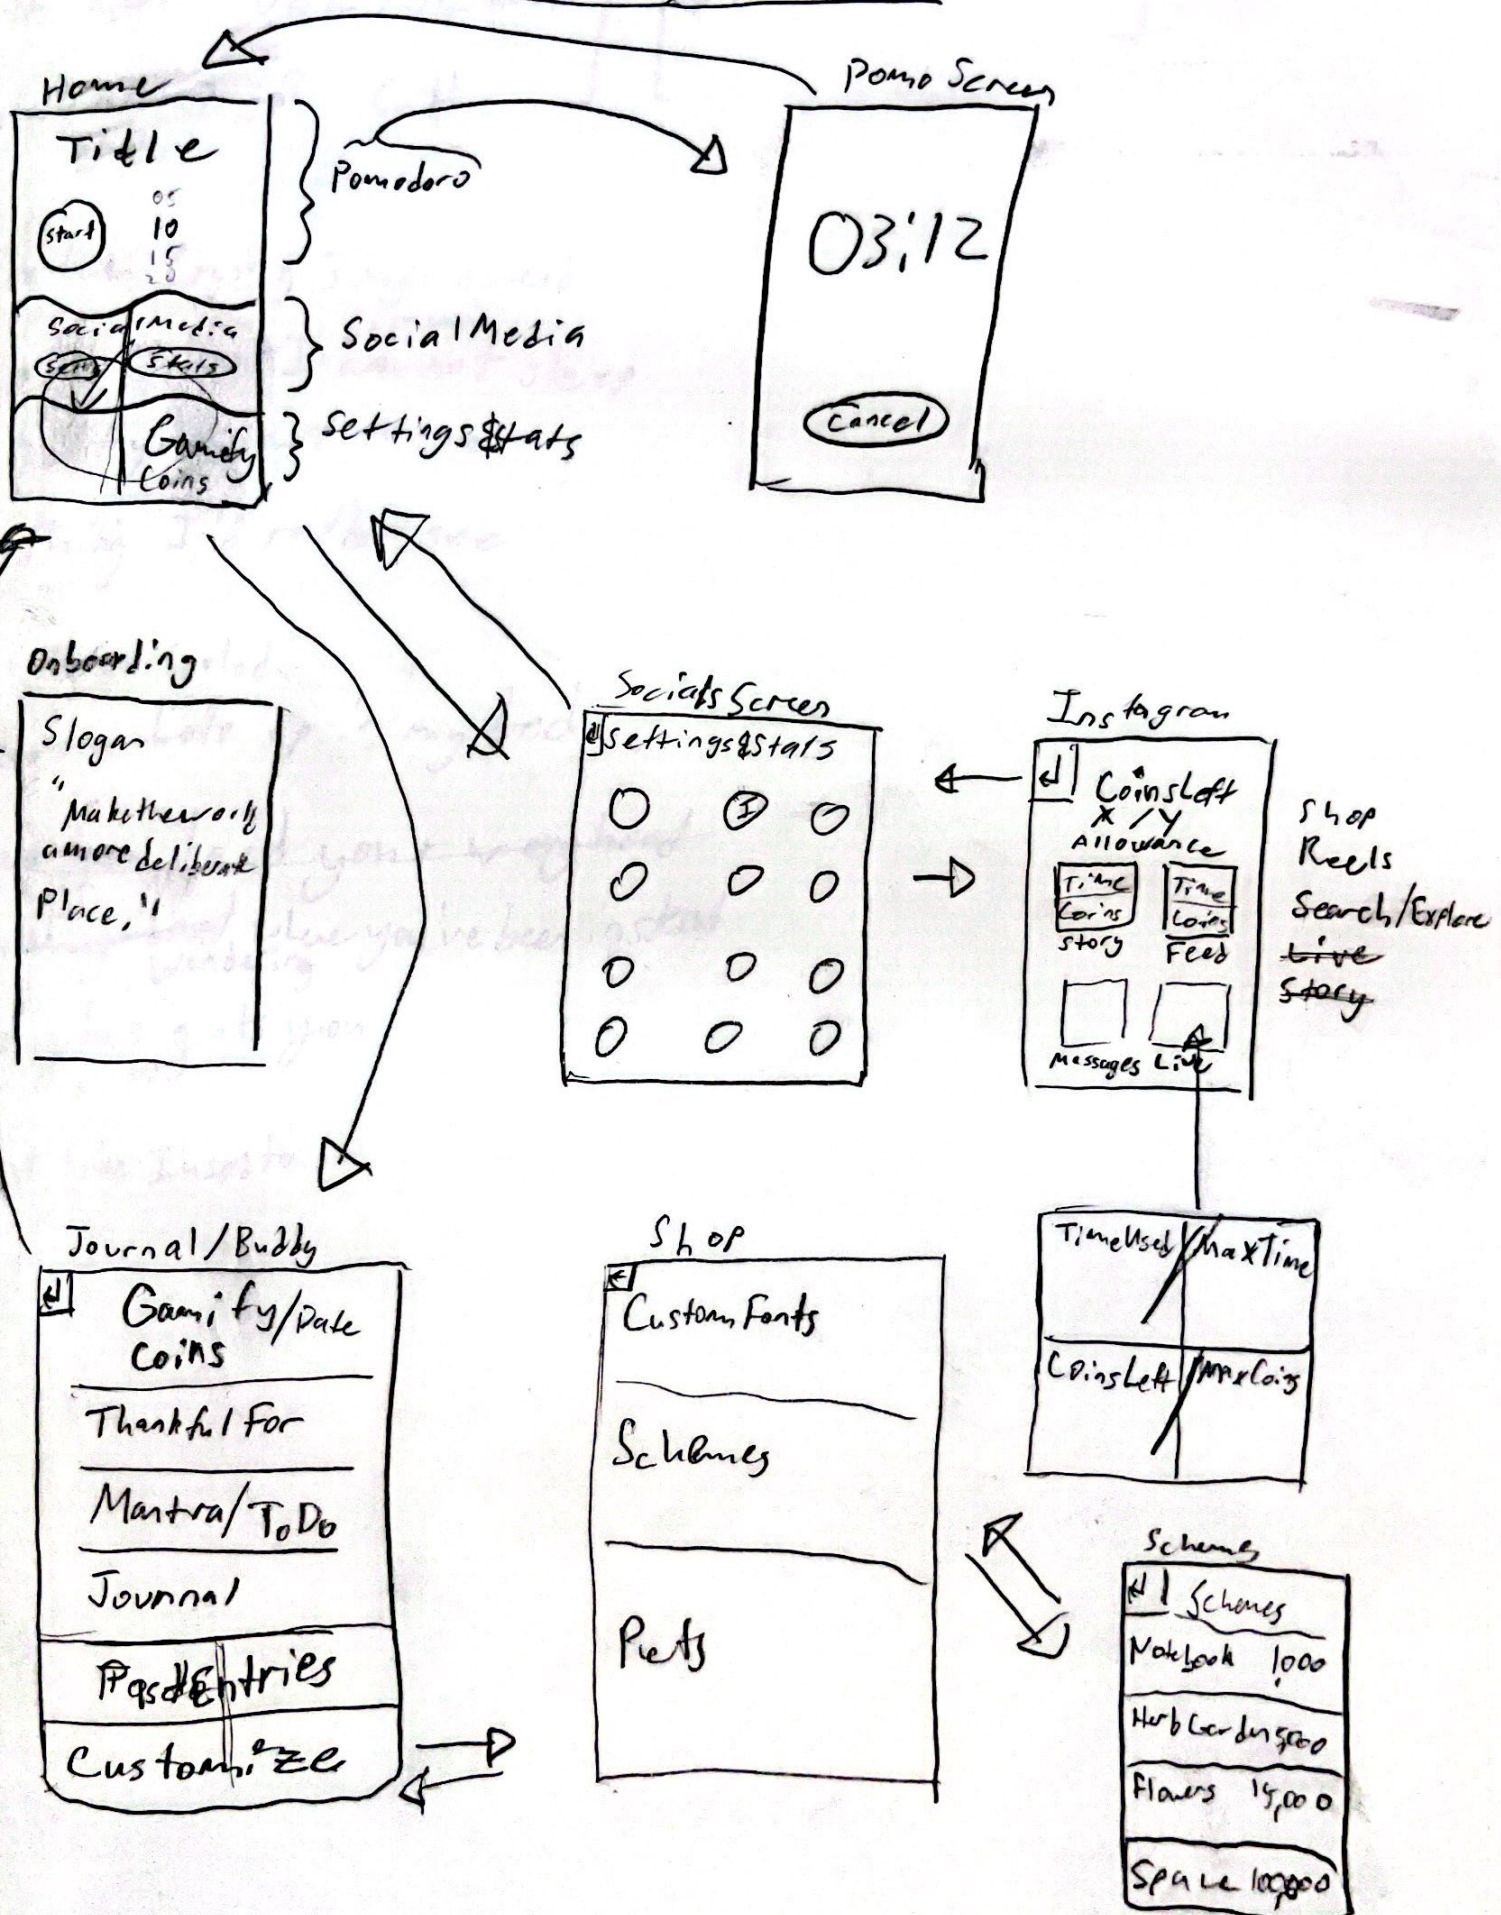 Home
Title
05
10
15
20
start
Social Media
Stats
Gamify
Coins
Pomodoro
Social Media
Settings & Stats
Pomo Screen
03:12
Cancel
Onboarding
Slogan
"Make the work
a more deliberate
Place."
Socials Screen
Settings & Stats
I
Instagram
Coins Left
X / Y
Allowance
Time
Coins
Story
Time
Coins
Feed
Messages
Live
Shop
Reels
Search/Explore
Live
Story
Time Used / Max Time
Coins Left / Max Coins
Journal/Buddy
Gamify/Date
Coins
Thankful For
Mantra/To Do
Journal
Past Entries
Customize
Shop
Custom Fonts
Schemes
Pets
Schemes
Schemes
Notebook 1,000
Herb Garden 5,000
Flowers 15,000
Space 100,000